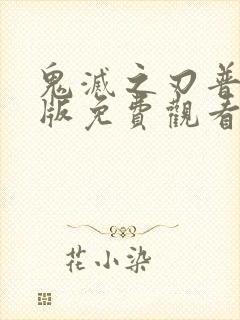 鬼滅之刃普
版免費觀看
花小染